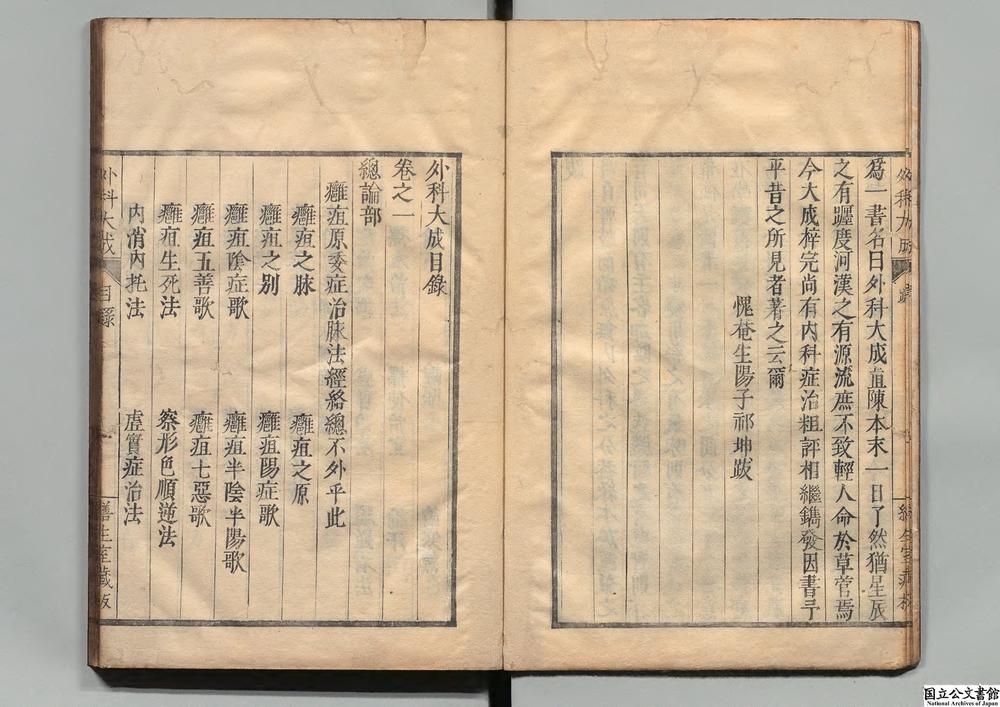 為一書名曰外科大成直陳本末一日了然猶星辰
之有躔度河漢之有源流庶不致輕人命於草菅焉
今大成梓完尚有內科症治粗評相繼鐫發因書予
平昔之所見者著之云爾
愧菴生陽子祁坤跋
外科大成目錄
卷之一
總論部
癰疽原委症治脉法經絡總不外乎此
癰疽之脉
癰疽之原
癰疽之别
癰疽陽症歌
癰疽陰症歌
癰疽半陰半陽歌
癰疽五善歌
癰疽七惡歌
癰疽生死法
察形色順逆法
内消內托法
虛實症治法
外科大成
目錄
善生堂藏板
国立公文書館
National Archives of Japan